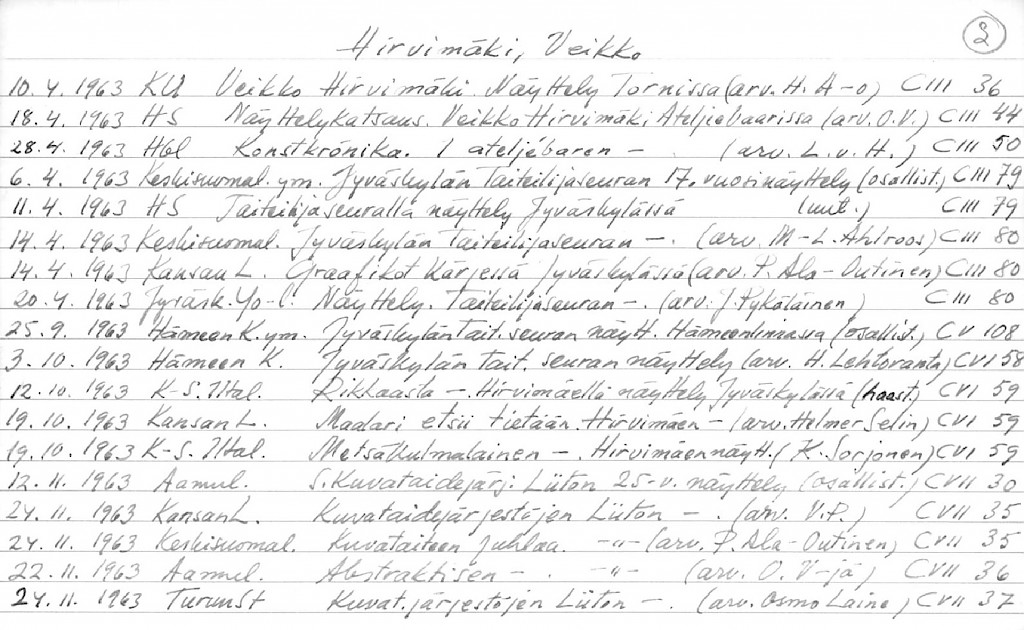 2
Hirvimäki, Veikko
10.4.1963 KU Veikko Hirvimäki. Näyttely Tornissa (arv. H. A-o) CIII 36
18.4.1963 HS Näyttelykatsaus. Veikko Hirvimäki Ateljeebaarissa (arv. O.V.) CIII 44
28.4.1963 Hbl Konstkrönika. I ateljébaren - . (arv. L.v.H.) CIII 50
6.4.1963 Keskisuomal. ym. Jyväskylän Taiteilijaseuran 17. vuosinäyttely (osallist.) CIII 79
11.4.1963 HS Taiteilijaseuralla näyttely Jyväskylässä (uut.) CIII 79
14.4.1963 Keskisuomal. Jyväskylän Taiteilijaseuran - . (arv. M-L. Ahlroos) CIII 80
14.4.1963 Kansan L. Graafikot kärjessä Jyväskylässä (arv. P. Ala-Outinen) CIII 80
20.4.1963 Jyväsk. Yo-l. Näyttely. Taiteilijaseuran - . (arv. J. Pykäläinen) CIII 80
25.9.1963 Hämeen K. ym. Jyväskylän Tait. seuran näytt. Hämeenlinnassa (osallist.) CV 108
3.10.1963 Hämeen K. Jyväskylän Tait. seuran näyttely (arv. H. Lehtoranta) CVI 58
12.10.1963 K-S. Iltal. Rikkaasta - . Hirvimäellä näyttely Jyväskylässä (haast.) CVI 59
19.10.1963 Kansan L. Maalari etsii tietään. Hirvimäen - (arv. Helmer Selin) CVI 59
19.10.1963 K-S. Iltal. Metsäkulmalainen - . Hirvimäen näytt. (K. Sorjonen) CVI 59
12.11.1963 Aamul. S. Kuvataidejärj. Liiton 25-v. näyttely (osallist.) CVII 30
24.11.1963 Kansan L. Kuvataidejärjestöjen Liiton - . (arv. V.P.) CVII 35
24.11.1963 Keskisuomal. Kuvataiteen juhlaa. -"- (arv. P. Ala-Outinen) CVII 35
22.11.1963 Aamul. Abstraktisen - . -"- (arv. O. V-jä) CVII 36
24.11.1963 TurunSt Kuvat.järjestöjen Liiton - . (arv. Osmo Laine) CVII 37